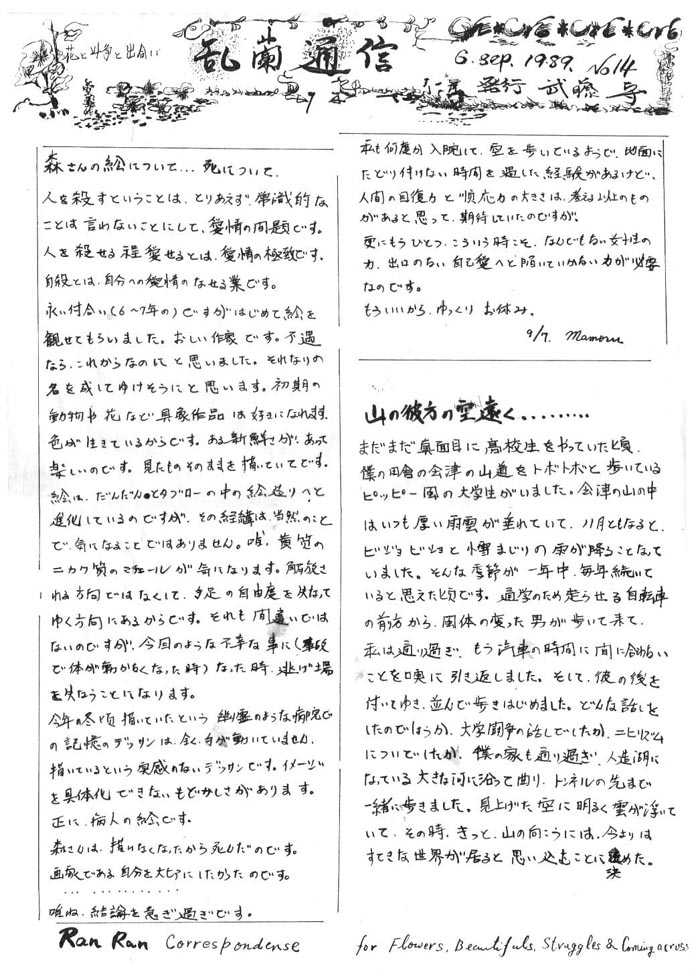 花と斗争と出合い
乱蘭通信
6. sep. 1989. No14
発行 武藤
森さんの絵について... 死について.
人を殺すということは、とりあえず、常識的な
ことは言わないことにして、愛情の問題です。
人を殺せる程愛せるとは、愛情の極致です.
自殺とは、自分への愛情のなせる業です。
永い付合い(6〜7年の)ですがはじめて絵を
観せてもらいました。おしい作家です。不遇
なら、これからなのにと思いました。それなりの
名を成してゆけそうにと思います。初期の
動物や花など具象作品は好きになれます.
色が生きているからです。ある新鮮さがあって
楽しいのです。見たものそのままを描いていてです.
絵は、だんだんとタブローの中の絵造りへと
進化しているのですが、その経緯は、当然のこと
で、気になることではありません。唯、黄質の
ニカワ質のマチエールが気になります。解放さ
れる方向ではなくして、手足の自由度を失なって
ゆく方向にあるからです。それも間違いでは
ないのですが、今回のような不幸な事に(事故
で体が動かなくなった時)なった時、逃げ場
を失なうことになります。
今年の冬頃描いていたという幽霊のような病院で
の記憶のデッサンは、全く、手が動いていません.
描いているという実感のないデッサンです。イメージ
を具体化できないもどかしさがあります。
正に、病人の絵です。
森さんは、描けなくなったから死んだのです。
画家である自分を大切にしたかったのです。
... ... ... ...
唯ね、結論を急ぎ過ぎです.
私も何度か入院して、空を歩いているようで、地面に
たどり付けない時間を過した経験があるけど、
人間の回復力と順応力の大きさは、考える以上のもの
があると思って、期待していたのですが。
更にもうひとつ、こういう時こそ、なんでもない女性の
力、出口のない自己愛へと陥いていかない力が必要
なのです。
もういいから、ゆっくりお休み.
9/7. Mamoru
山の彼方の空遠く.........
まだまだ真面目に高校生をやっていた頃.
僕の田舎の会津の山道をトボトボと歩いている
ヒッピー風の大学生がいました。会津の山の中
はいつも厚い雨雲が垂れていて、11月ともなると、
ビショビショと小雪まじりの雨が降ることなって
いました。そんな季節が一年中、毎年続いて
いると思えた頃です。通学のため走らせる自転車
の前方から、風体の変った男が歩いて来て.
私は通り過ぎ、もう汽車の時間に間に合わない
ことを口実に引き返しました。そして、彼の後を
付いてゆき、並んで歩きはじめました。どんな話しを
したのでしょうか、大学闘争の話しでしたか、ニヒリズム
についてでしたか、僕の家も通り過ぎ、人造湖に
なっている大きな河に沿って曲り、トンネルの先まで
一緒に歩きました。見上げた空に明るく雲が浮いて
いて、その時、きっと、山の向こうには、今よりは
すてきな世界が居ると思い込むことに決めた。
Ran Ran Correspondense
for Flowers, Beautifuls, Struggles & Coming across